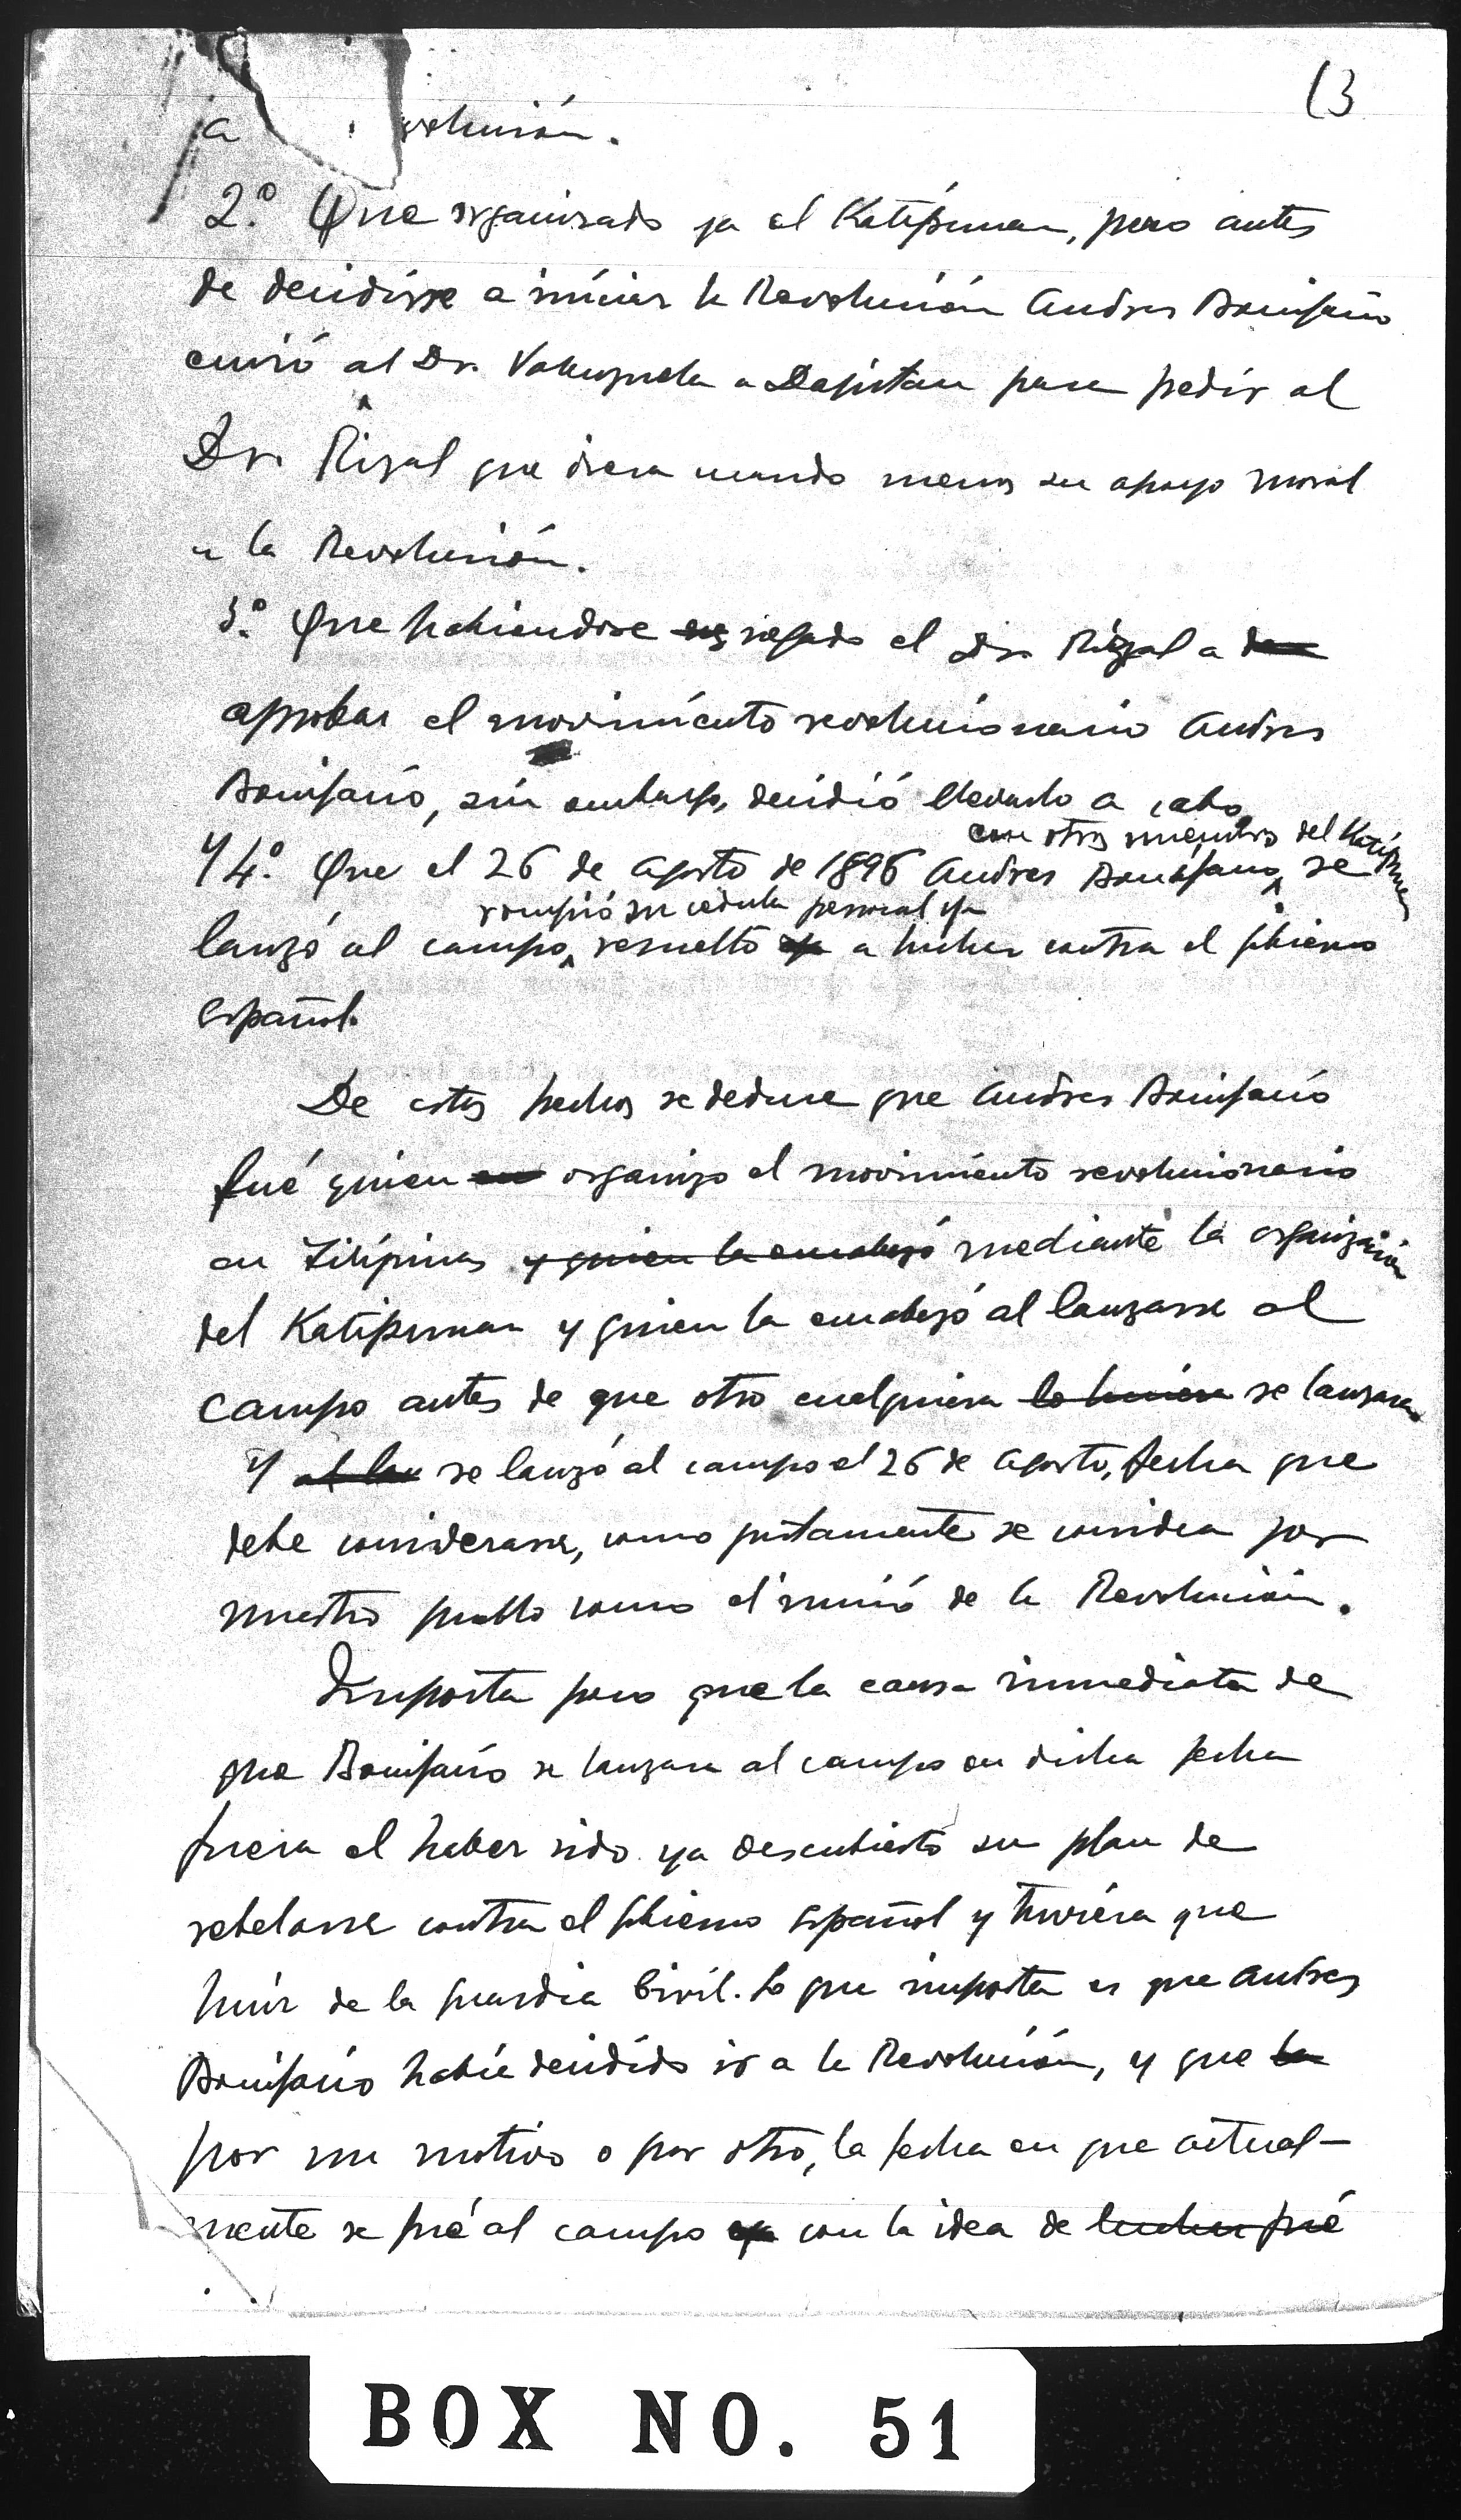 13
a volución.
2.º Que organizado ya el Katipunan, pero antes
de decidirse a iniciar la Revolución Andres Bonifacio
envió al Dr. Valenzuela a Dapitan para pedir al
Dr. Rizal que diera cuando menos su apoyo moral
a la Revolución.
3.º Que habiendose negado el Dr. Rizal a
aprobar el movimiento revolucionario Andres
Bonifacio, sin embargo, decidió llevarlo a cabo
con otros miembros del Katipunan
Y 4.º Que el 26 de Agosto de 1896 Andres Bonifacio se
rompió su cedula personal y
lanzó al campo, resuelto a luchar contra el gobierno
Español.
De estos hechos se deduce que Andres Bonifacio
fué quien organizo el movimiento revolucionario
en Filipinas y quien la encabezó mediante la organización
del Katipunan y quien la encabezó al lanzarse al
campo antes de que otro cualquiera lo hiciera se lanzara
Y se lanzó al campo el 26 de Agosto, fecha que
debe considerarse, como justamente se considera por
nuestro pueblo como el inicio de la Revolución.
Importa poco que la causa inmediata de
que Bonifacio se lanzara al campo en dicha fecha
fuera el haber sido ya descubierto su plan de
rebelarse contra el gobierno Español y tuviera que
huir de la guardia Civil. Lo que importa es que Andres
Bonifacio habia decidido ir a la Revolución, y que la
por un motivo o por otro, la fecha en que actual-
mente se fué al campo con la idea de luchar fué
BOX NO. 51